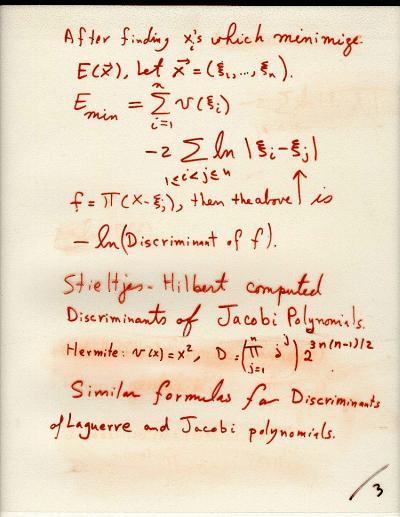 After finding xᵢ's which minimize
E(x⃗), Let x⃗ = (ξ₁,…,ξₙ).
E_min = Σ_{i=1}^{n} v(ξᵢ)
-2 Σ_{1≤i<j≤n} ln |ξᵢ-ξⱼ|
f = Π(x-ξⱼ), then the above ↑ is
- ln(Discriminant of f).
Stieltjes-Hilbert computed
Discriminants of Jacobi Polynomials.
Hermite: v(x)=x², D=(Π_{j=1}^{n} j^j) 2^{3n(n-1)/2}.
Similar formulas for Discriminants
of Laguerre and Jacobi polynomials.
3